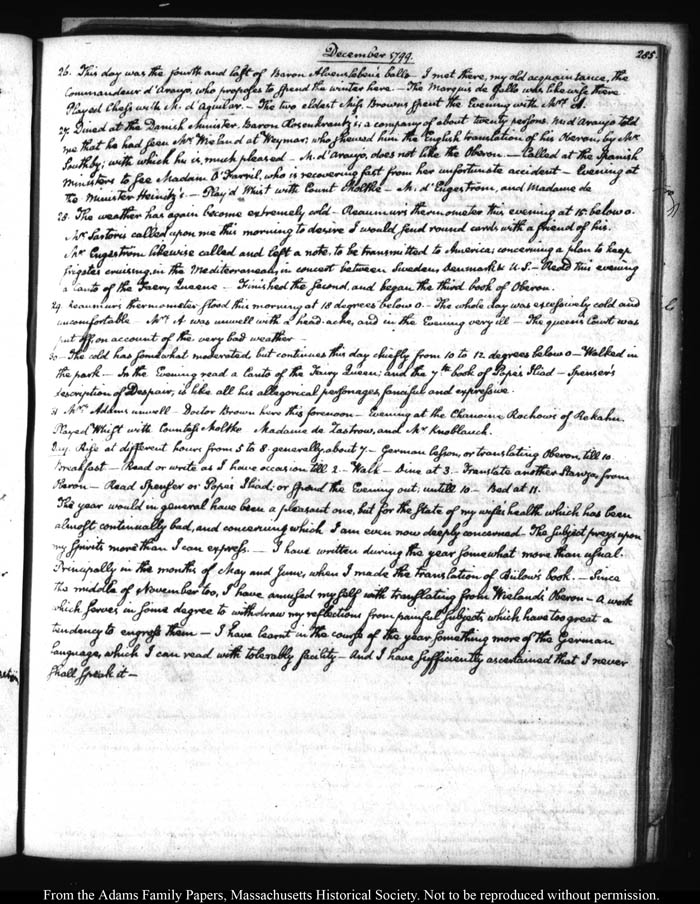 December 1799.
285
26. This day was the fourth and last of Baron Alvensleben's balls — I met there, my old acquaintance, the
Commandeur d'Araujo, who proposes to spend the winter here. — The Marquis de Gallo was likewise there
Played Chess with M. d'Aguilar. — The two eldest Miss Browns spent the Evening with Mrs. A.
27. Dined at the Danish Minister, Baron Rosenkrantz's; a company of about twenty persons. M. d'Araujo told
me that he had seen Mr. Wieland at Weymar; who shewed him the English translation of his Oberon, by Mr.
Southby; with which he is much pleased — M. d'Araujo, does not like the Oberon. — Called at the Spanish
Ministers to see Madam O'Farril, who is recovering fast from her unfortunate accident — Evening at
the Minister Heinitz's — Play'd Whist with Count Moltke — M. d'Engeström, and Madame de
28. The weather has again become extremely cold — Reaumurs thermometer this evening at 15. below 0.
Mr. Sartoris called upon me this morning to desire I would send round cards with a friend of his.
Mr. Engeström likewise called and left a note, to be transmitted to America; concerning a plan to keep
frigates cruizing, in the Mediterranean, in concert between Sweden, Denmark & U.S. — Read this evening
a Canto of the Faery Queene — Finished the second, and began the third book of Oberon.
29. Reaumurs thermometer stood this morning at 18 degrees below 0. — The whole day was excessively cold and
uncomfortable — Mrs. A was unwell with a head-ache, and in the Evening very ill — The queen's Court was
put off, on account of the very bad weather —
30 — The cold has somewhat moderated but continues this day chiefly from 10 to 12 degrees below 0 — Walked in
the park — In the Evening read a Canto of the Faery Queen; and the 7th. book of Pope's Iliad — Spenser's
description of Despair, is like all his allegorical personages, fanciful and expressive.
31 Mrs. Adams unwell — Doctor Brown here this forenoon — Evening at the Chanoine Rochows of Rekahn.
Played Whist with Countess Moltke Madame de Zastrow, and Mr. Knoblauch.
Day. Rise at different hours from 5 to 8. generally, about 7 — German lesson, or translating Oberon, till 10.
Breakfast — Read or write as I have occasion till 2 — Walk — Dine at 3. — Translate another Stanza, from
Oberon — Read Spenser or Pope's Iliad; or spend the Evening out, untill 10 — Bed at 11.
The year would in general have been a pleasant one, but for the state of my wife's health which has been
almost continually bad, and concerning which I am even now deeply concerned — The subject preys upon
my spirits more than I can express. — I have written during the year somewhat more than usual.
Principally, in the months of May and June, when I made the translation of Bülow's book. — Since
the middle of November too, I have amused myself with translating from Wieland's Oberon — A work
which serves in some degree to withdraw my reflections from painful subjects, which have too great a
tendency to engross them — I have learnt in the course of the year something more of the German
language, which I can read with tolerably facility — And I have sufficiently ascertained that I never
shall speak it —
From the Adams Family Papers, Massachusetts Historical Society. Not to be reproduced without permission.